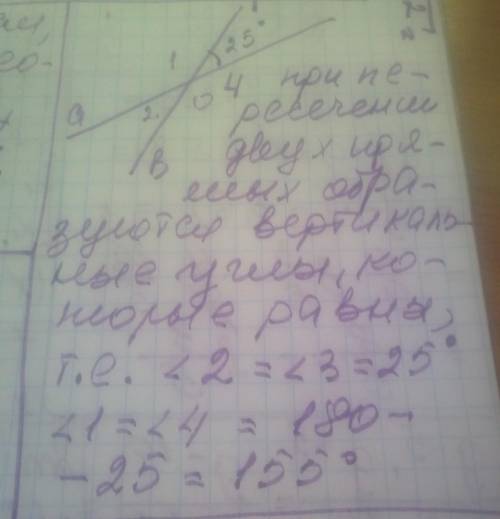 25°
1
а 2 О 4
В
при пе-
ресечении
двух пря-
мых обра-
зуются вертикаль-
ные углы, ко-
торые равны,
т.е. <2 = <3 = 25°
<1 = <4 = 180 -
- 25 = 155°